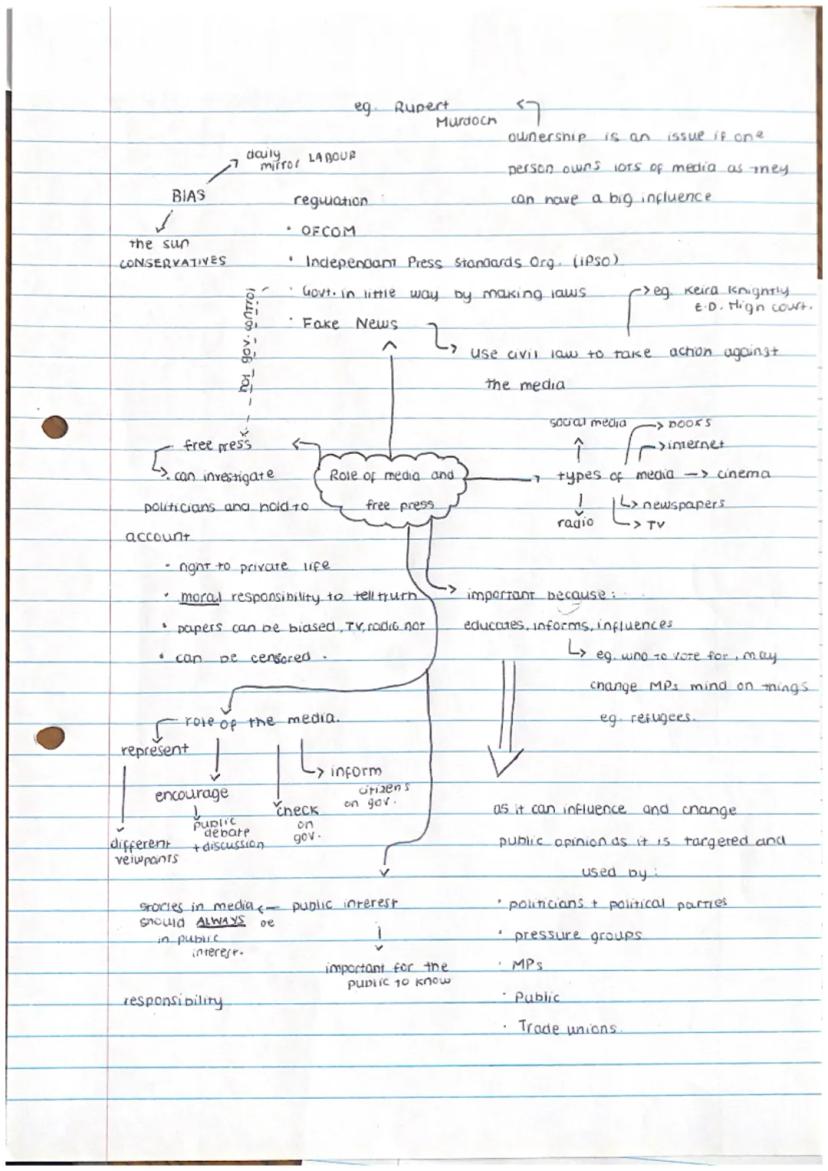 eg. Rupert
Murdoch
ownership is an issue if one
person owns lots of media as they
can have a big influence
daily
mirror LABOUR
BIAS
the sun
CONSERVATIVES
reguation
• OFCOM
• Independant Press Standards Org. (IPSO)
• Govt. in little way by making laws
• Fake News
not gov. control
eg. Keira Knightly
E.D. High court.
use civil law to take action against
the media
free press
can investigate
politicians and hold to
account
• right to private life
• moral responsibility to tell truth
• papers can be biased, TV, radio not
• can be censored.
Role of media and
free press
social media
books
internet
types of media → cinema
newspapers
TV
radio
important because:
educates, informs, influences
eg. who to vote for, may
change MPs mind on things
eg. refugees.
role of the media.
represent
different
veiwpants
encourage
public
debate
+ discussion
check
on
gov.
inform
citizens
on gov.
as it can influence and change
public opinion as it is targeted and
used by:
• politicians + political parties
• pressure groups
• MPs
• Public
• Trade unions.
stories in media ← public interest
should ALWAYS be
in public
interest.
important for the
public to know
responsibility